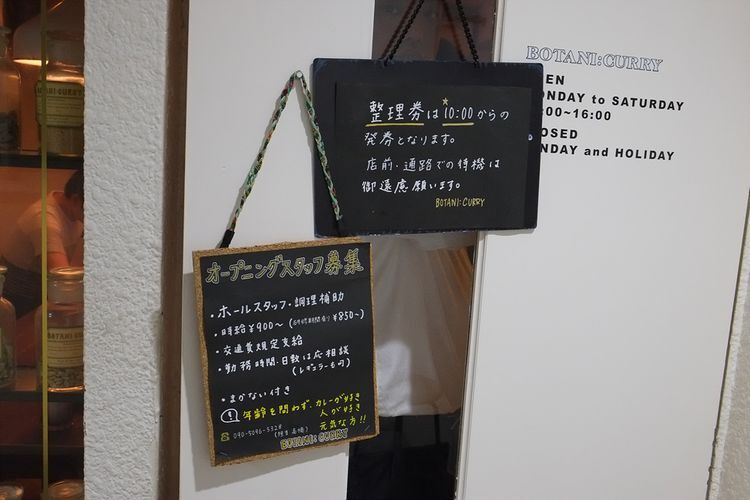 整理券は10:00からの
発券となります。
店前・通路での待機は
御遠慮願います。
BOTANI:CURRY
BOTANI:CURRY
EN
ONDAY to SATURDAY
:00~16:00
OSED
NDAY and HOLIDAY
オープニングスタッフ募集
・ホールスタッフ・調理補助
・時給¥900～(研修期間有り ¥850～)
・交通費規定支給
・勤務時間・日数は応相談
(レギュラーも可)
・まかない付き
年齢を問わず、カレーが好き
人が好き
元気な方!!
☎ 090-5096-5328
BOTANI:CURRY